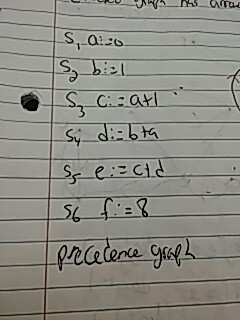 graph has
S1 a:=0
S2 b:=1
S3 c:=a+1
S4 d:=b+a
S5 e:=c+d
S6 f:=8
precedence graph